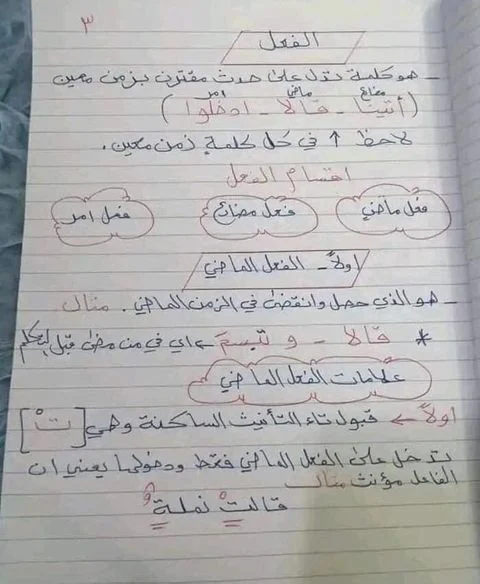 ٣
الفعل
- هو كلمة تدل على حدث مقترن بزمن معين
مضارع ماضي امر
(أتينا - قالا - ادخلوا)
لاحظ ↑ في كل كلمة زمن معين.
اقسام الفعل
فعل ماضي فعل مضارع فعل امر
اولاً - الفعل الماضي
- هو الذي حصل وانقضى في الزمن الماضي. مثال
* قالا - و تبسم ← اي في من مضى قبل التكلم
علامات الفعل الماضي
اولاً ← قبول تاء التأنيث الساكنة وهي [تْ]
تدخل على الفعل الماضي فقط ودخولها يعني ان
الفاعل مؤنث مثال
قالتْ نملةٌ